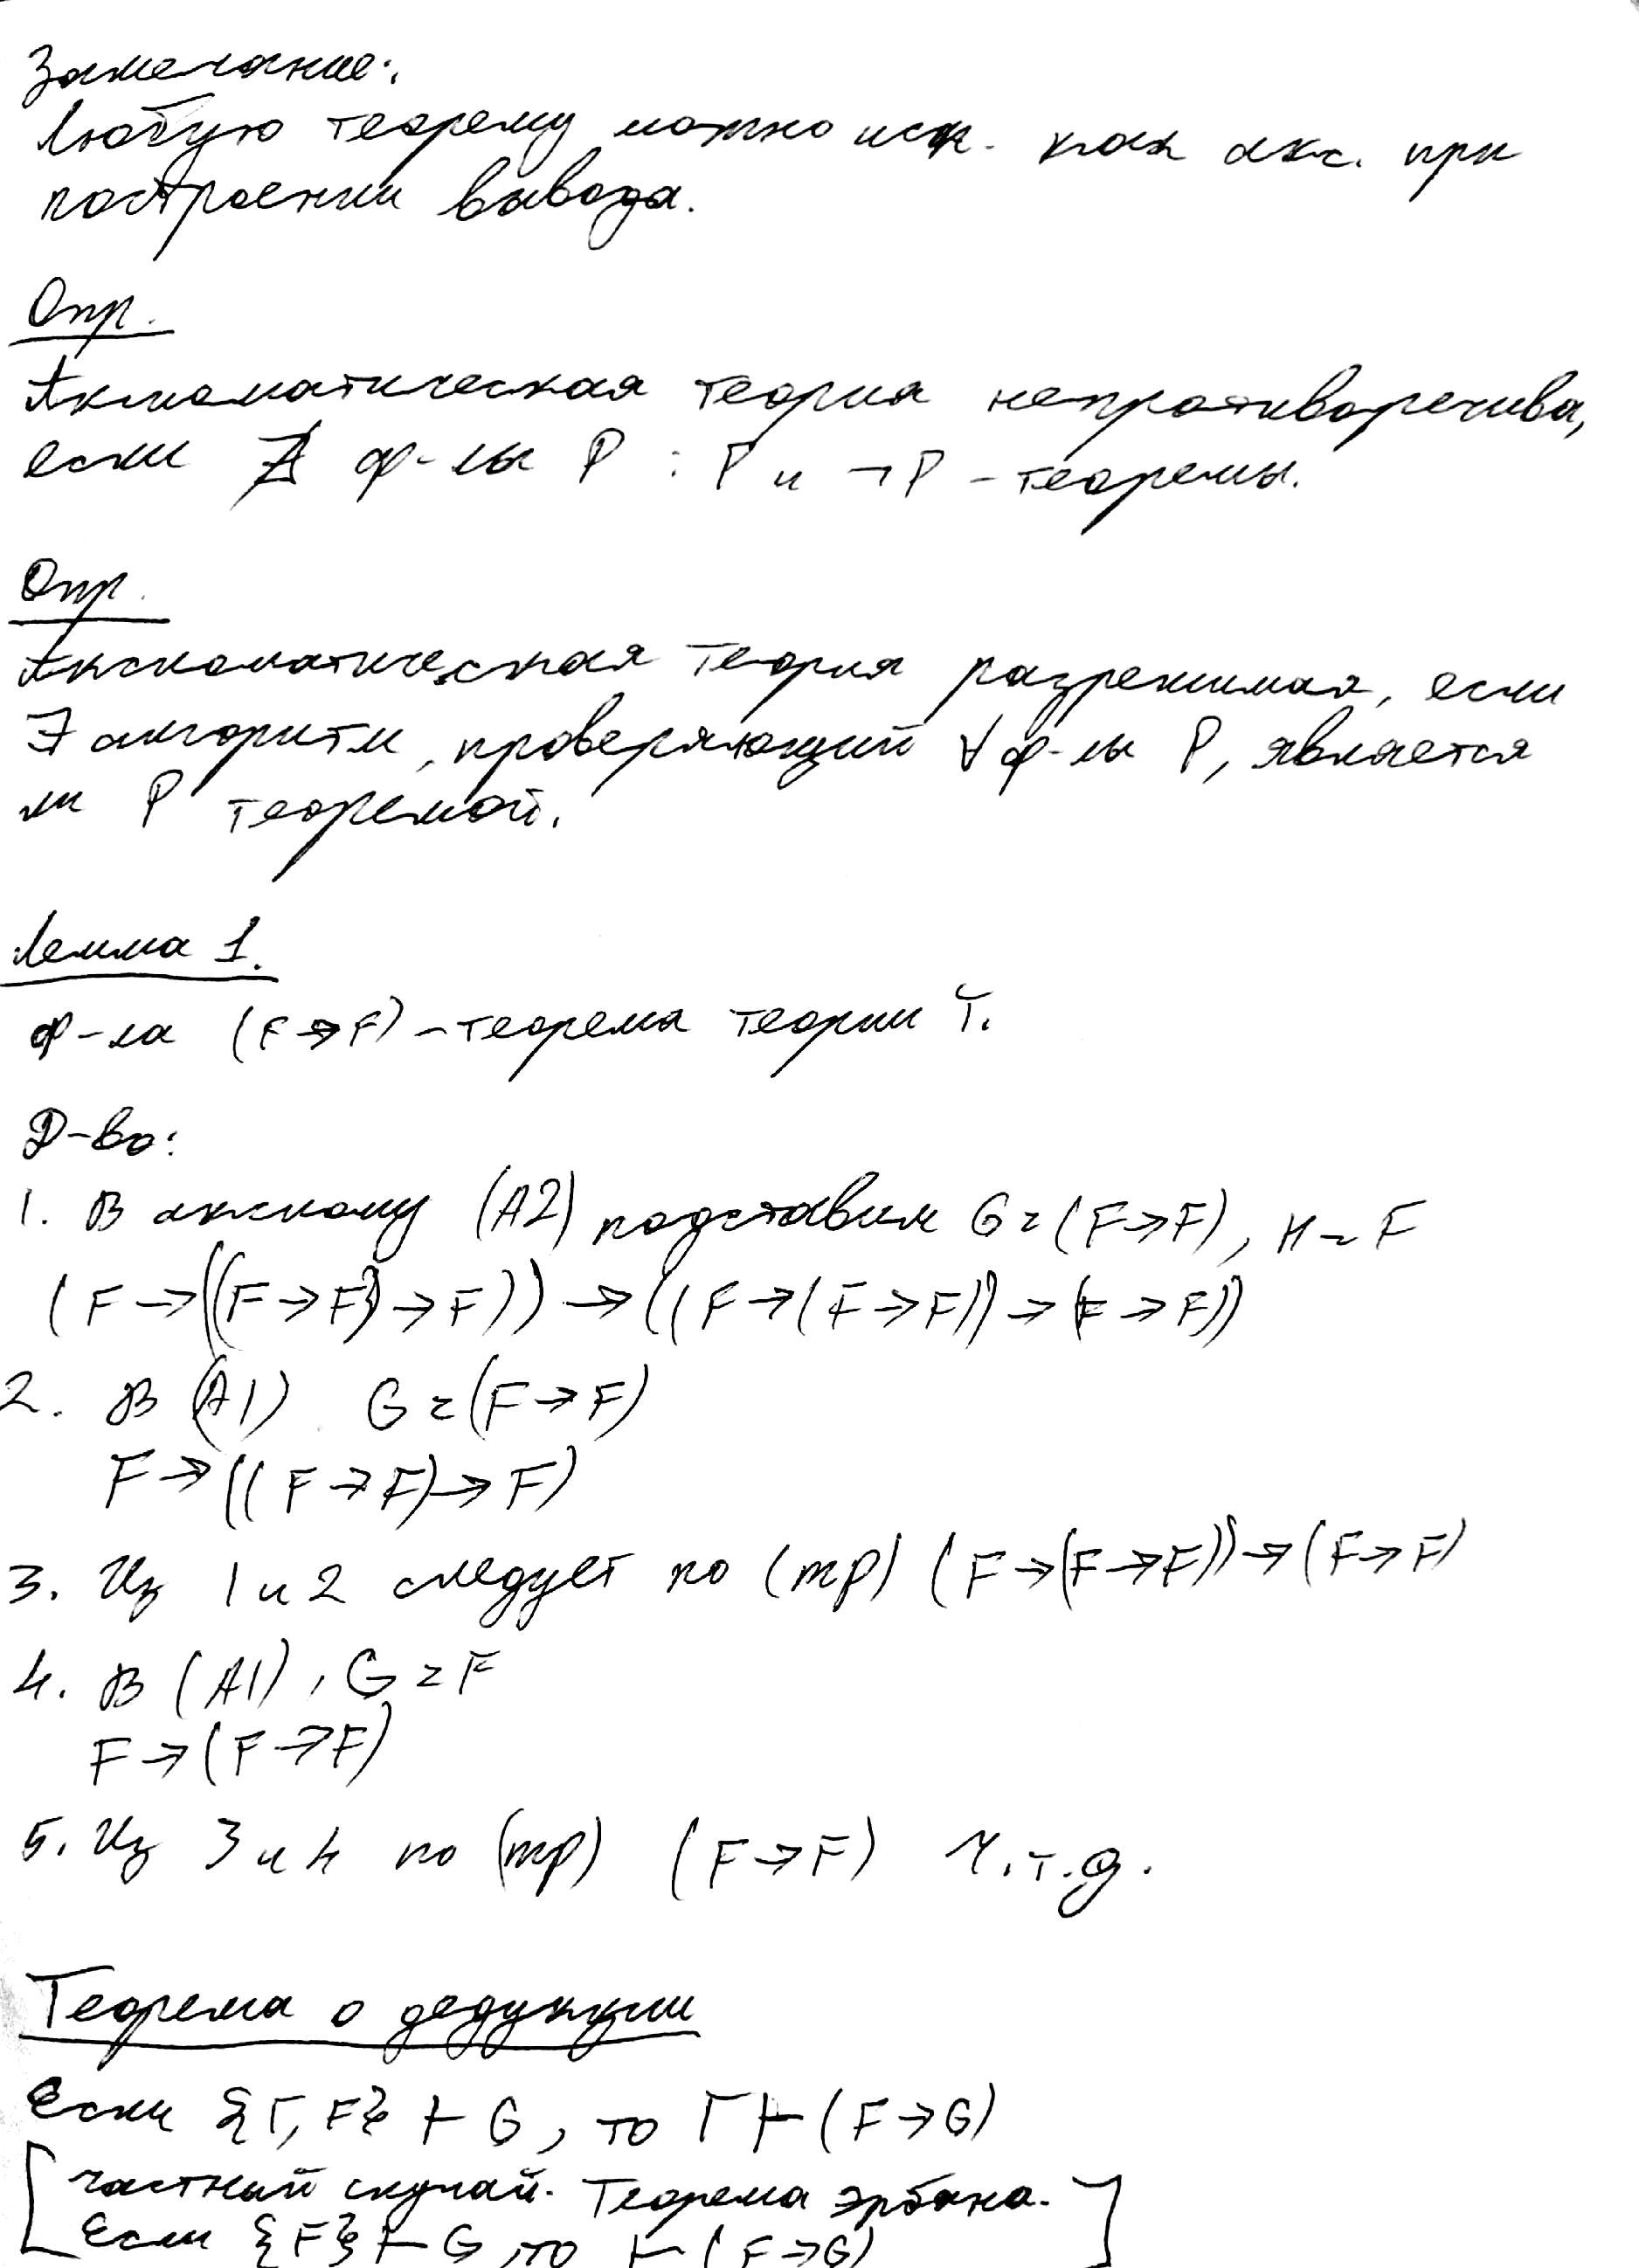 Замечание:
Любую теорему можно исп. как акс. при
построении вывода.
Опр.
Аксиоматическая теория непротиворечива,
если ∄ ф-лы P : P и ¬P - теоремы.
Опр.
Аксиоматическая теория разрешимая, если
∃ алгоритм, проверяющий ∀ ф-лы P, является
ли P теоремой.
Лемма 1.
Ф-ла (F→F) - теорема теории Т.
Д-во:
1. В аксиому (A2) подставим G=(F→F), H=F
(F→((F→F)→F))→((F→(F→F))→(F→F))
2. В (A1) G=(F→F)
F→((F→F)→F)
3. Из 1 и 2 следует по (mp) (F→(F→F))→(F→F)
4. В (A1), G=F
F→(F→F)
5. Из 3 и 4 по (mp) (F→F) ч.т.д.
Теорема о дедукции
Если {Г,F} ⊢ G, то Г ⊢ (F→G)
[частный случай. Теорема эрбрана.
Если {F} ⊢ G, то ⊢ (F→G)]